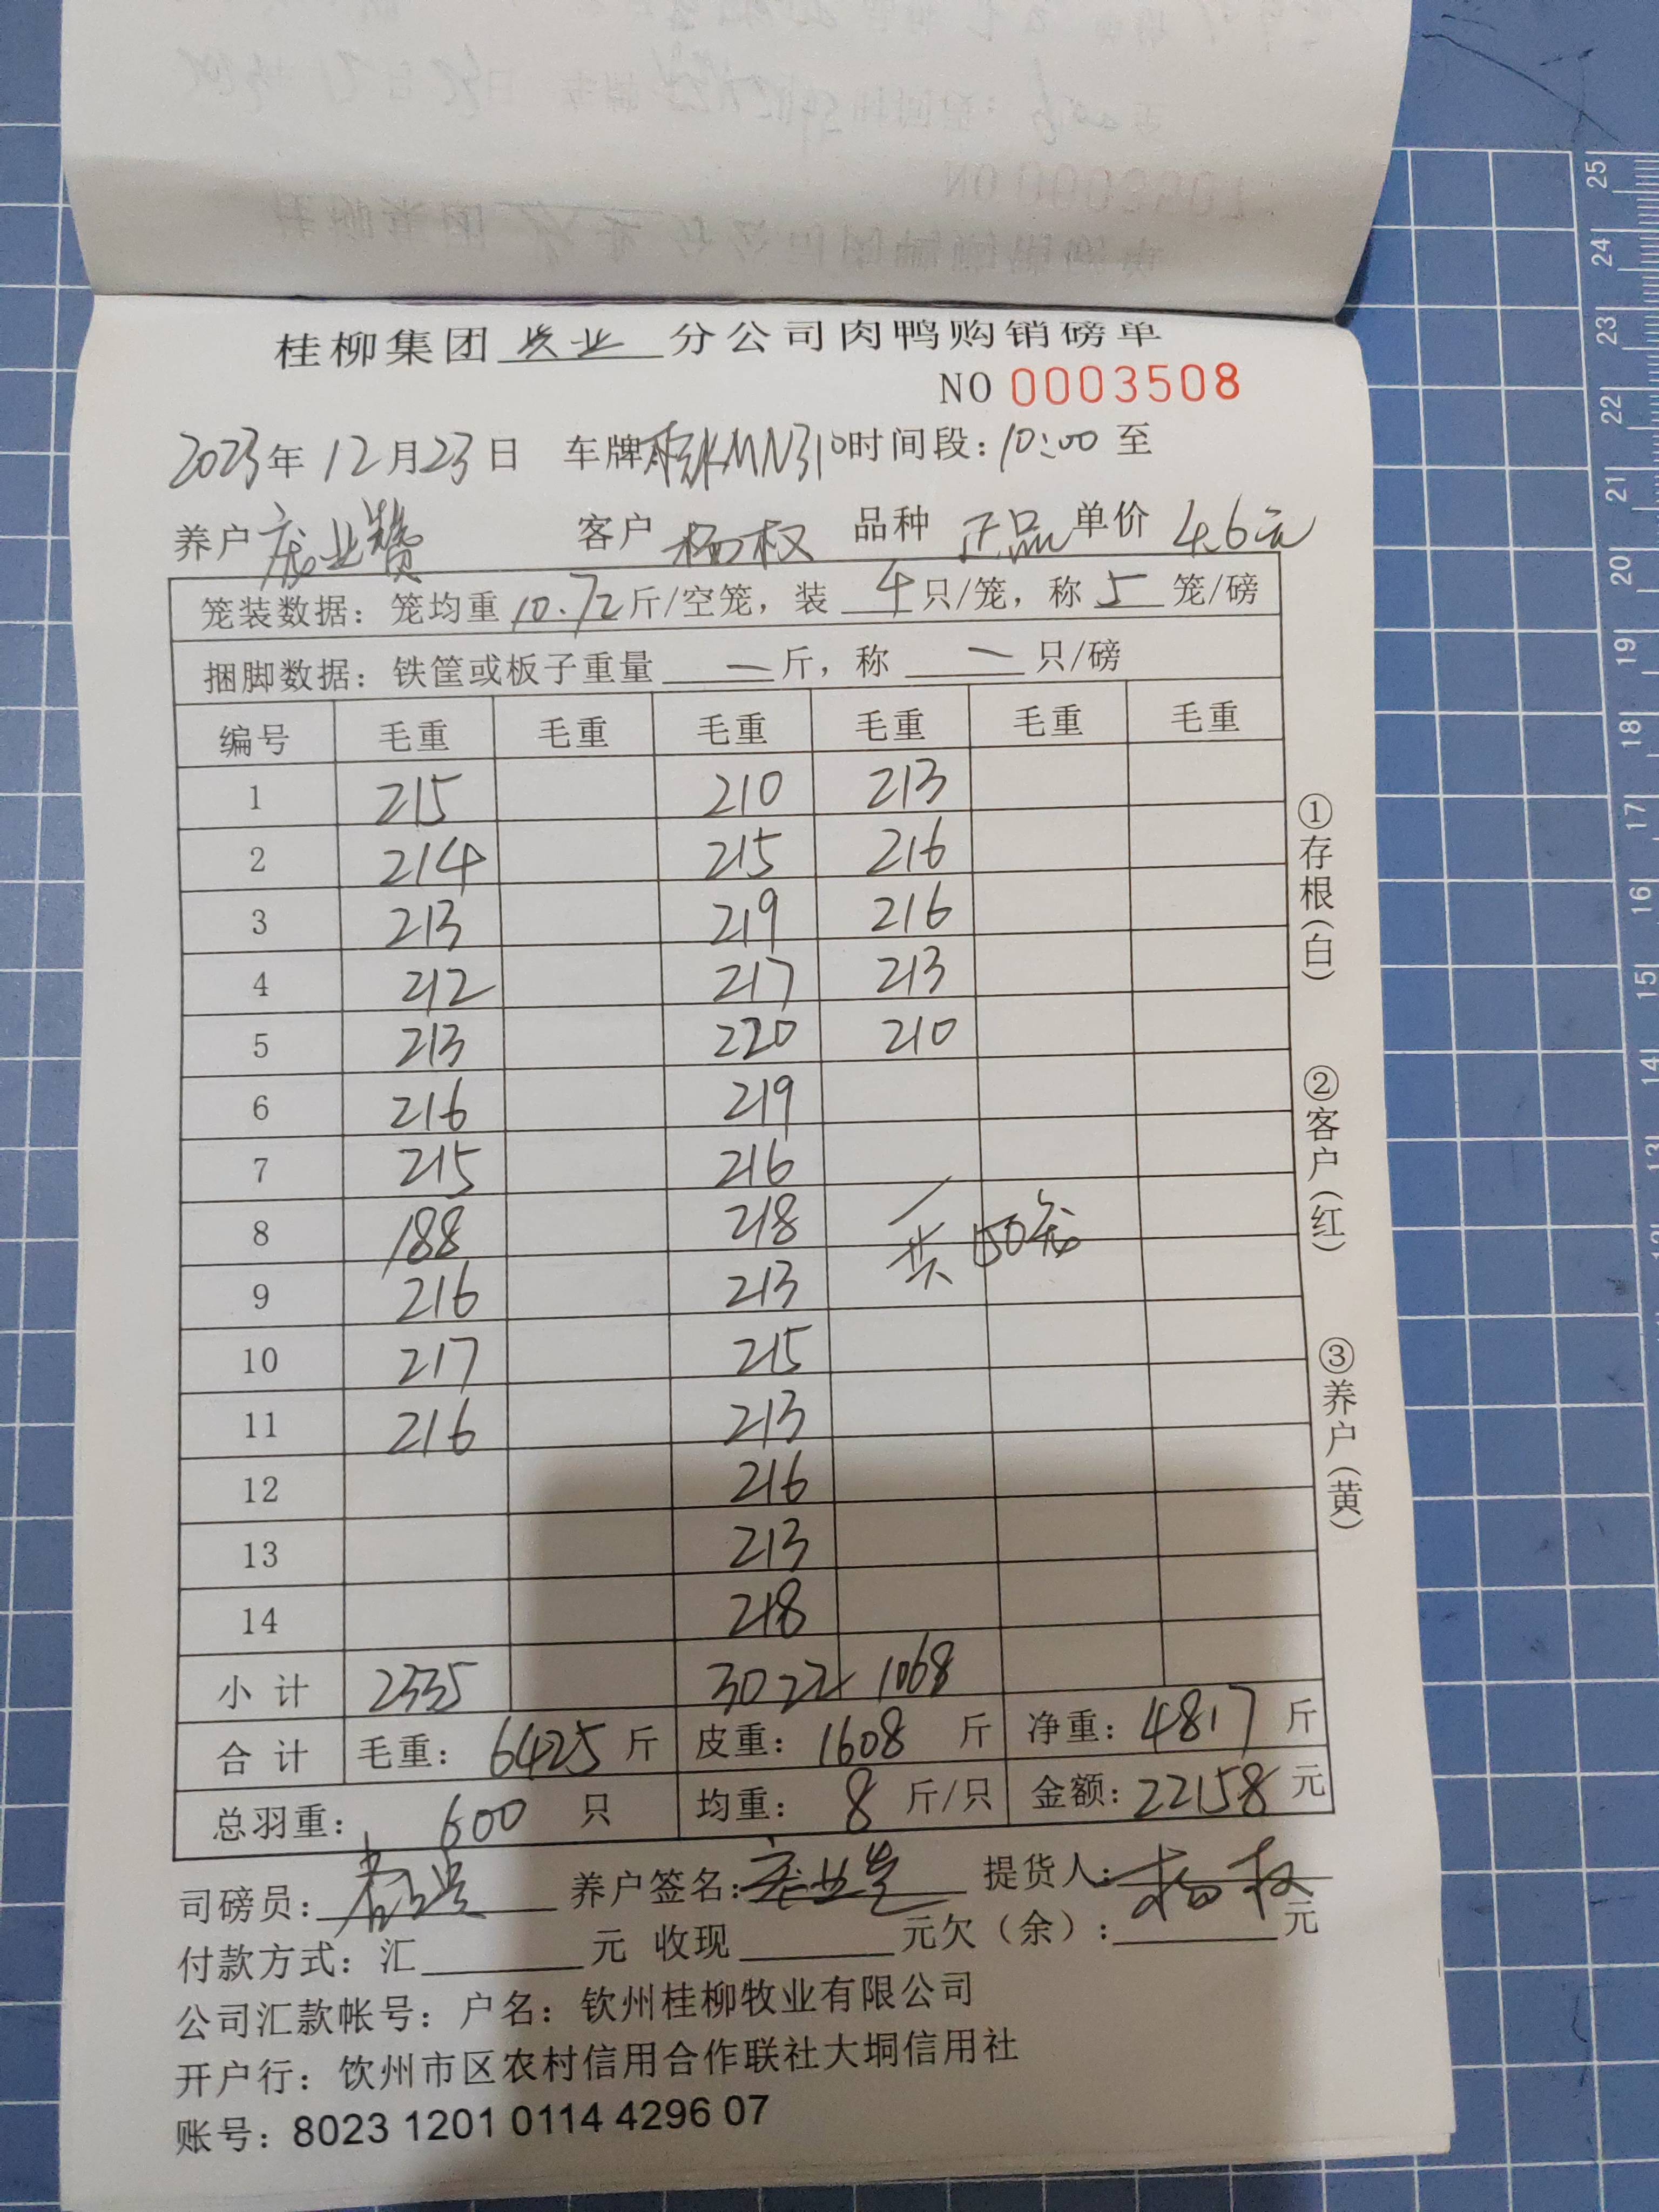 桂柳集团 牧业 分公司肉鸭购销磅单
NO 0003508
2023年 12月23日 车牌 MN310 时间段: 10:00 至
养户 庞业赞 客户 杨权 品种 正品 单价 4.6元
笼装数据: 笼均重 10.72 斤/空笼, 装 4 只/笼, 称 5 笼/磅
捆脚数据: 铁筐或板子重量 — 斤, 称 — 只/磅
编号 毛重 毛重 毛重 毛重 毛重 毛重
1 215 210 213
2 214 215 216
3 213 219 216
4 212 217 213
5 213 220 210
6 216 219
7 215 216
8 188 218
共150笼
9 216 213
10 217 215
11 216 213
12 216
13 213
14 218
小计 2335 3022 1068
合计 毛重: 6425 斤 皮重: 1608 斤 净重: 4817 斤
总羽重: 600 只 均重: 8 斤/只 金额: 22158 元
司磅员: 养户签名: 提货人: 杨权
付款方式: 汇 元 收现 元欠(余): 元
公司汇款帐号: 户名: 钦州桂柳牧业有限公司
开户行: 钦州市区农村信用合作联社大垌信用社
账号: 8023 1201 0114 4296 07
①存根(白)
②客户(红)
③养户(黄)
25
24
23
22
21
20
19
18
17
16
15
14
13
12